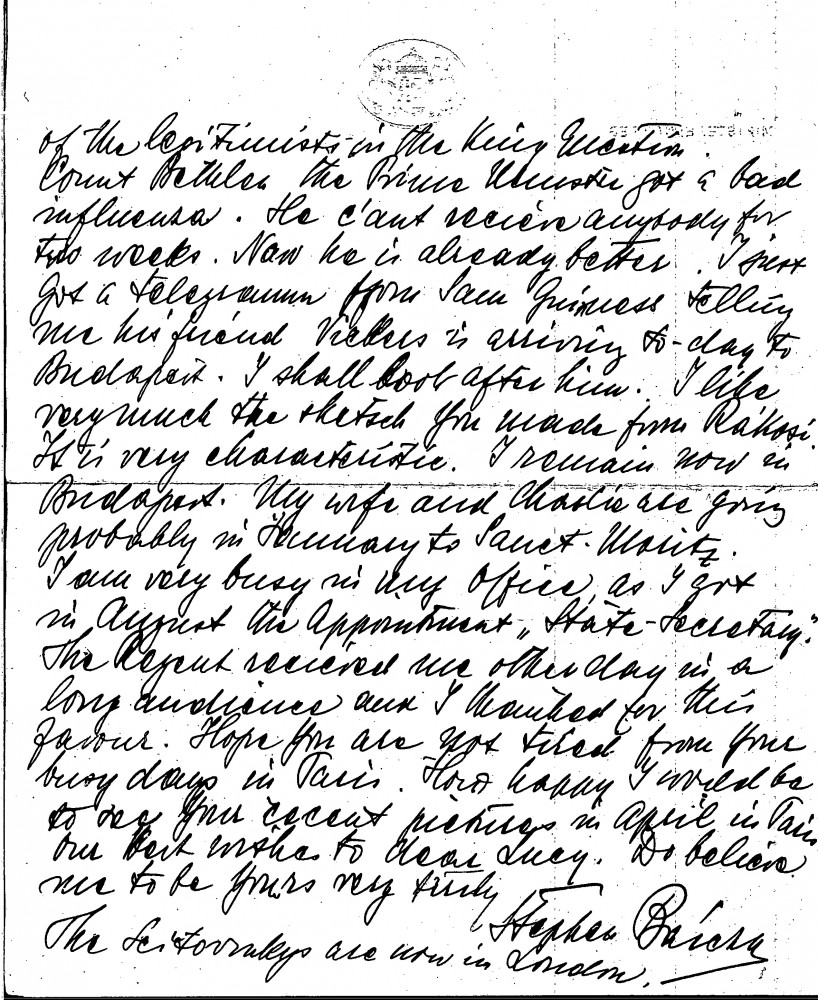 of the legitimists in the King Question.
Count Bethlen the Prime Minister got a bad
influenza. He c'ant recieve anybody for
two weeks. Now he is already better. I just
got a telegramm from Sam Guinness telling
me his friend Vickers is arriving to-day to
Budapest. I shall look after him. I like
very much the sketsch you made from Rákosi.
It is very characteristic. I remain now in
Budapest. My wife and Charlie are going
probably in January to Sanct-Moritz.
I am very busy in my office, as I got
in August the appointment „State-Secretary".
The Regent recieved me other day in a
long audience and I thanked for this
favour. Hope you are not tired from your
busy days in Paris. How happy I would be
to see your recent pictures in April in Paris
Our best wishes to dear Lucy. Do believe
me to be yours very truly
Stephen Bárczy
The Scitovszkys are now in London.